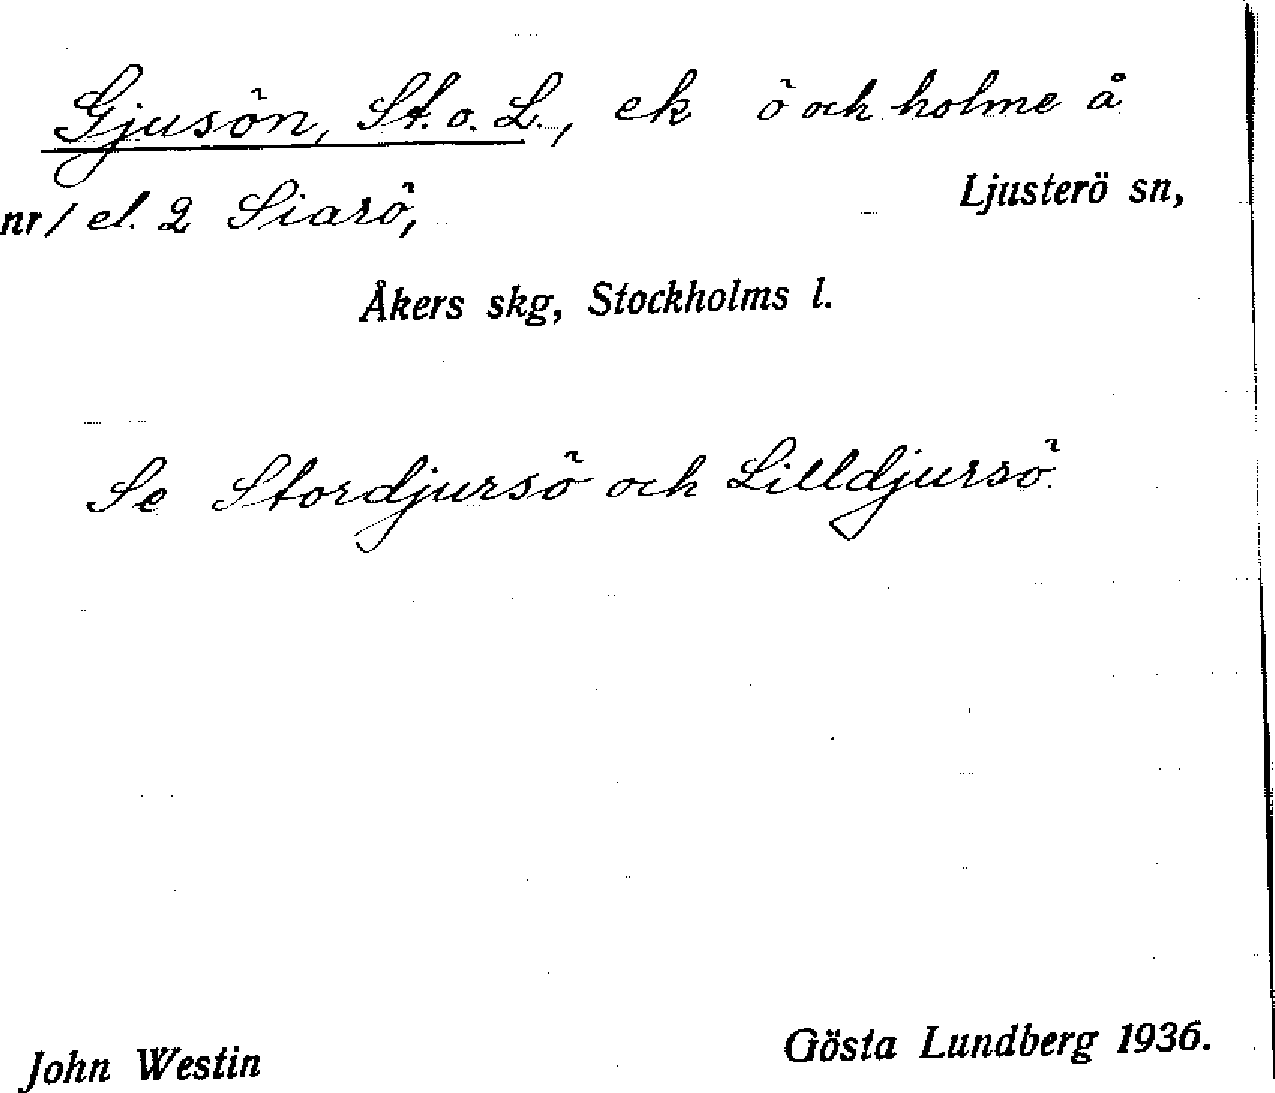 Gjusön, St. o. L., ek ö och holme å
nr 1 el. 2 Siarö, Ljusterö sn,
Åkers skg, Stockholms l.
Se Stordjursö och Lilldjursö.
John Westin Gösta Lundberg 1936.